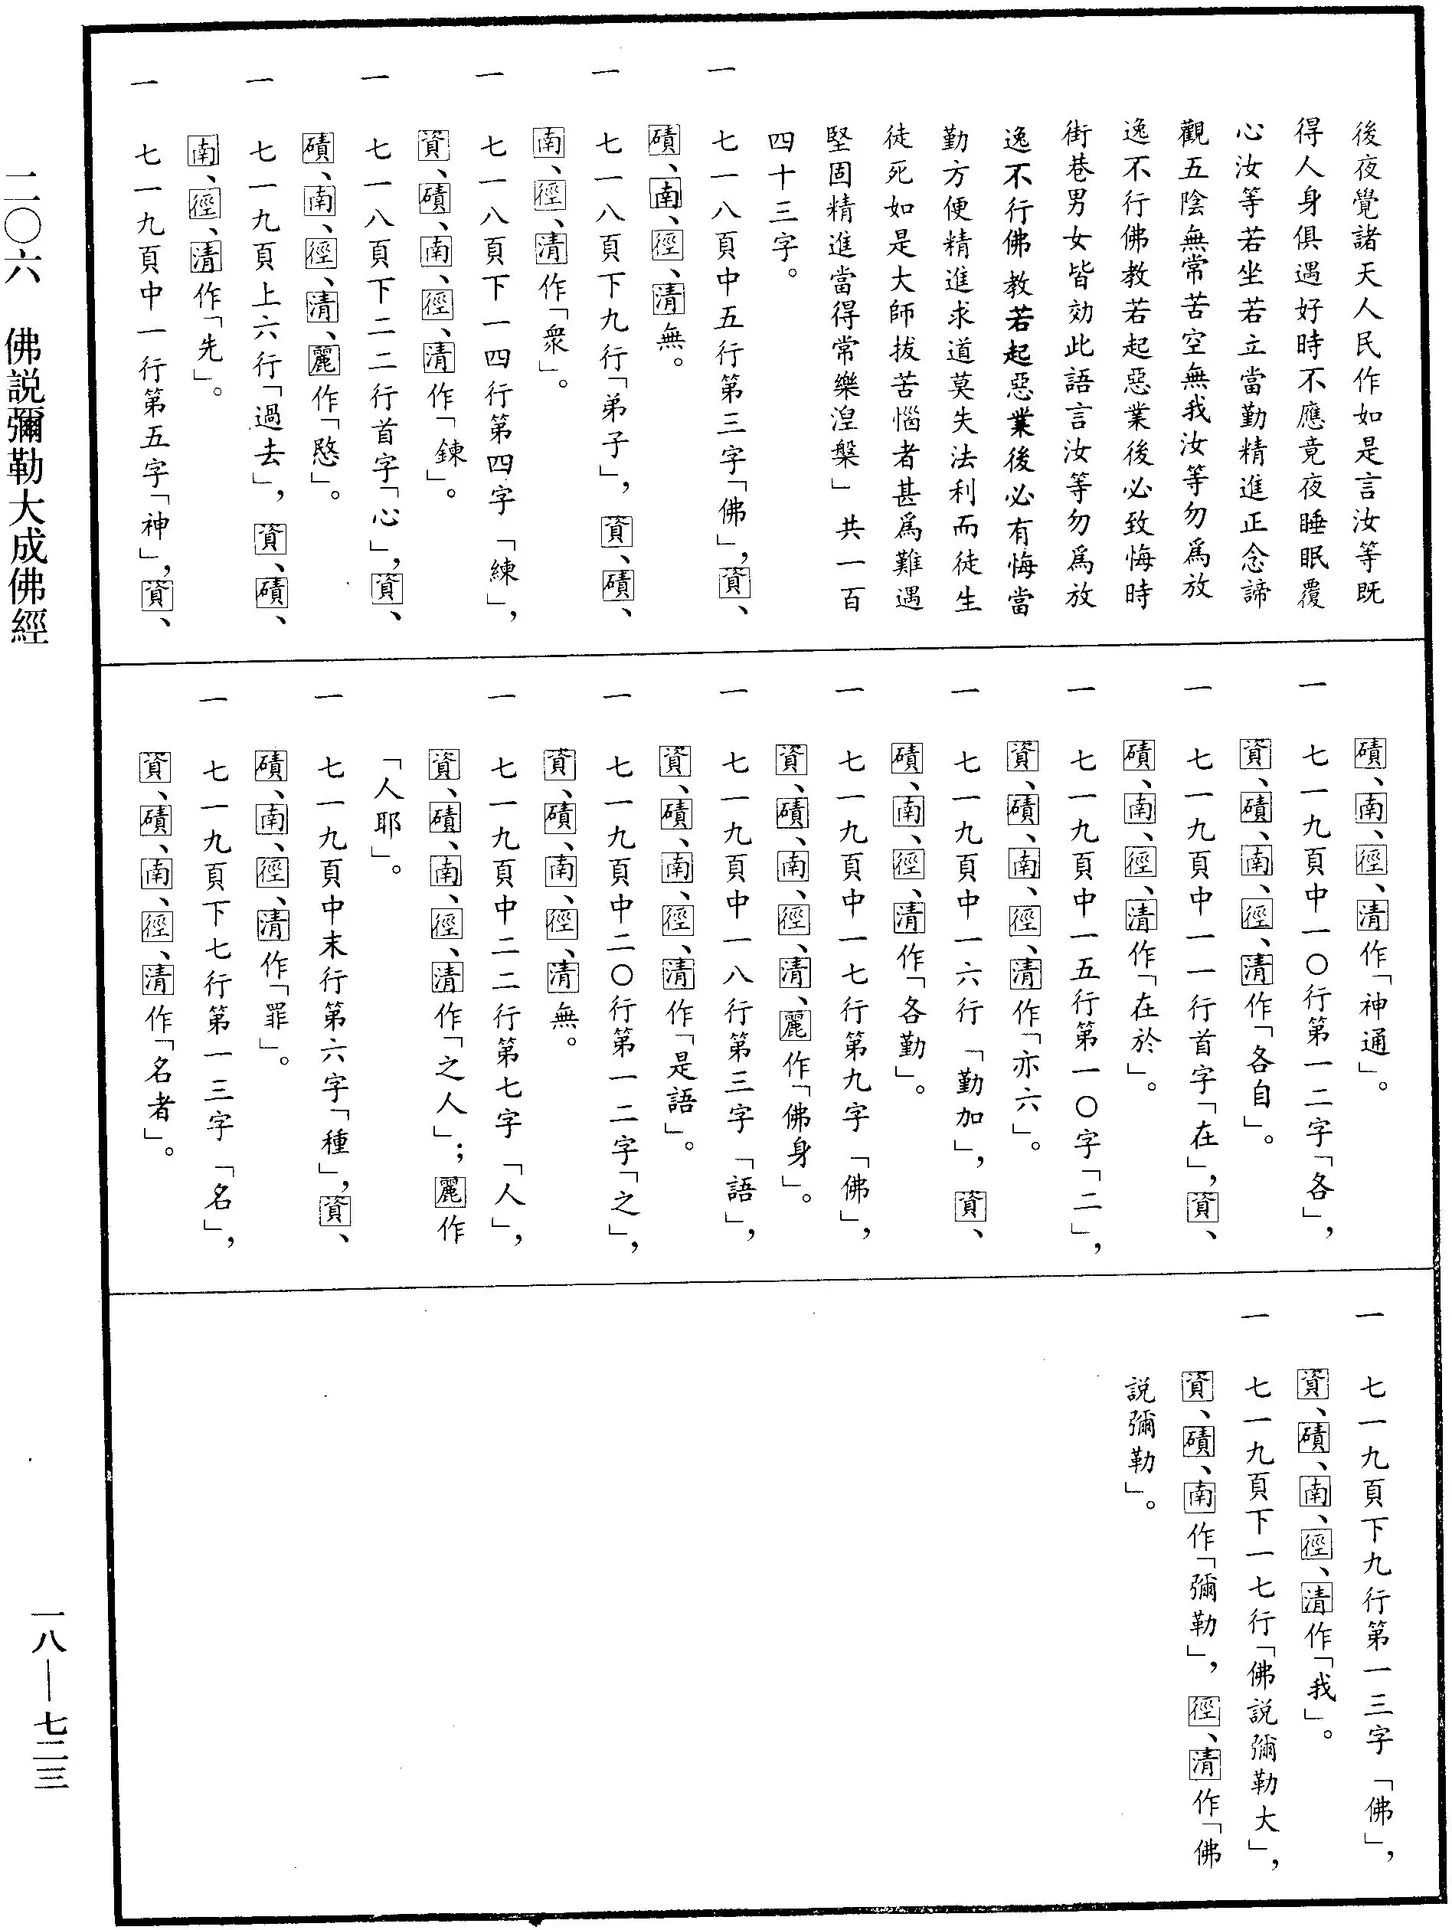 後夜覺諸天人民作如是言汝等既
得人身俱遇好時不應竟夜睡眠覆
心汝等若坐若立當勤精進正念諦
觀五陰無常苦空無我汝等勿爲放
逸不行佛教若起惡業後必致悔時
街巷男女皆効此語言汝等勿爲放
逸不行佛教若起惡業後必有悔當
勤方便精進求道莫失法利而徒生
徒死如是大師拔苦惱者甚爲難遇
堅固精進當得常樂涅槃」共一百
四十三字。
一 七一八頁中五行第三字「佛」，資、
磧、南、徑、清無。
一 七一八頁下九行「弟子」，資、磧、
南、徑、清作「衆」。
一 七一八頁下一四行第四字「練」，
資、磧、南、徑、清作「鍊」。
一 七一八頁下二二行首字「心」，資、
磧、南、徑、清、麗作「愍」。
一 七一九頁上六行「過去」，資、磧、
南、徑、清作「先」。
一 七一九頁中一行第五字「神」，資、
磧、南、徑、清作「神通」。
一 七一九頁中一〇行第一二字「各」，
資、磧、南、徑、清作「各自」。
一 七一九頁中一一行首字「在」，資、
磧、南、徑、清作「在於」。
一 七一九頁中一五行第一〇字「二」，
資、磧、南、徑、清作「亦六」。
一 七一九頁中一六行「勤加」，資、
磧、南、徑、清作「各勤」。
一 七一九頁中一七行第九字「佛」，
資、磧、南、徑、清、麗作「佛身」。
一 七一九頁中一八行第三字「語」，
資、磧、南、徑、清作「是語」。
一 七一九頁中二〇行第一二字「之」，
資、磧、南、徑、清無。
一 七一九頁中二二行第七字「人」，
資、磧、南、徑、清作「之人」；麗作
「人耶」。
一 七一九頁中末行第六字「種」，資、
磧、南、徑、清作「罪」。
一 七一九頁下七行第一三字「名」，
資、磧、南、徑、清作「名者」。
一 七一九頁下九行第一三字「佛」，
資、磧、南、徑、清作「我」。
一 七一九頁下一七行「佛説彌勒大」，
資、磧、南作「彌勒」，徑、清作「佛
説彌勒」。
二〇六 佛説彌勒大成佛經
一八—七二三